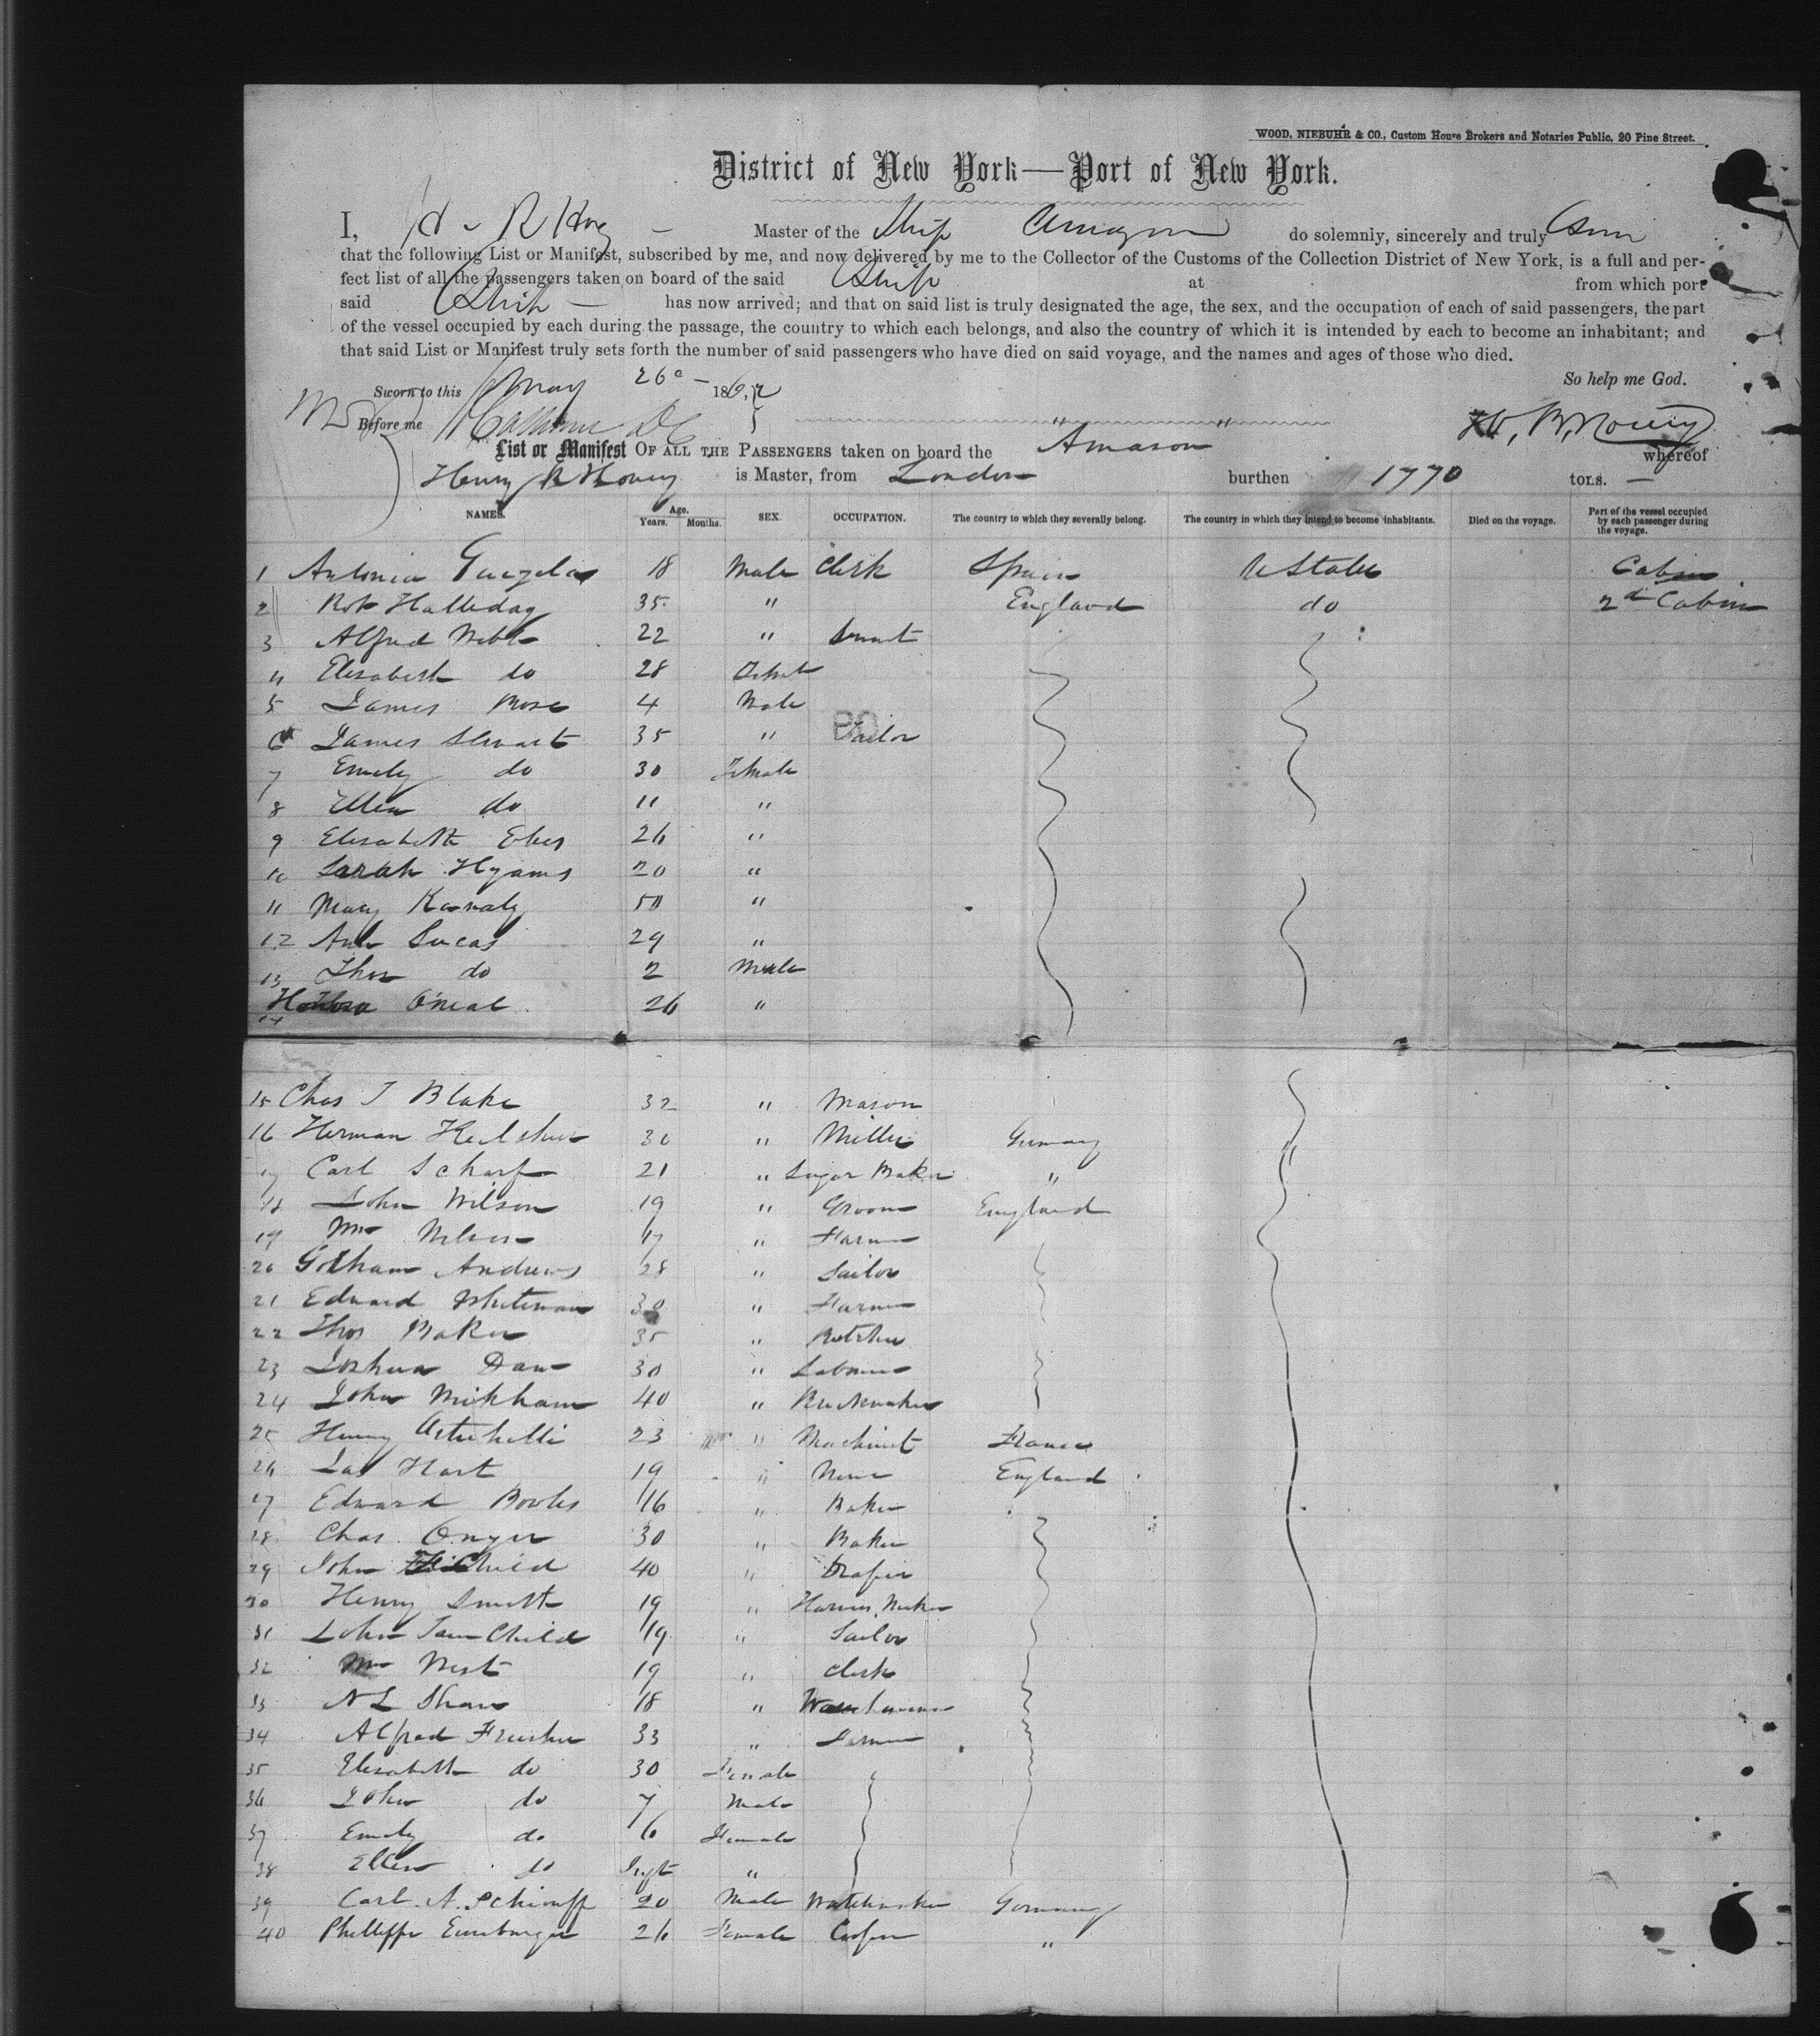 WOOD, NIEBUHR & CO., Custom House Brokers and Notaries Public, 20 Pine Street.
District of New York—Port of New York.
I, H R Master of the Ship do solemnly, sincerely and truly
that the following List or Manifest, subscribed by me, and now delivered by me to the Collector of the Customs of the Collection District of New York, is a full and per-
fect list of all the passengers taken on board of the said Ship at from which port
said Ship has now arrived; and that on said list is truly designated the age, the sex, and the occupation of each of said passengers, the part
of the vessel occupied by each during the passage, the country to which each belongs, and also the country of which it is intended by each to become an inhabitant; and
that said List or Manifest truly sets forth the number of said passengers who have died on said voyage, and the names and ages of those who died.
So help me God.
Sworn to this May 26 186,2
Before me
List or Manifest OF ALL THE PASSENGERS taken on board the Amason whereof
Henry R Hovey is Master, from London burthen 1770 tons. —
NAMES. Age. Years. Months. SEX. OCCUPATION. The country to which they severally belong. The country in which they intend to become inhabitants. Died on the voyage. Part of the vessel occupied by each passenger during the voyage.
1 Antonia 18 Male Clerk Spain U States Cabin
2 Rob Halliday 35 " England do 2d Cabin
3 Alfred Webb 22 "
4 Elisabeth do 28 Female
5 James Rose 4 Male
6 James Stewart 35 " Tailor
7 Emely do 30 Female
8 Ellen do 11 "
9 Elisabeth 26 "
10 Sarah Hyams 20 "
11 Mary 50 "
12 Ann Lucas 29 "
13 Thos do 2 Male
14 O'neal 26 "
15 Chas T Blake 32 " Mason
16 Herman 30 " Miller Germany
17 Carl Scharf 21 " Sugar Baker "
18 John Wilson 19 " Groom England
19 Wm 17 " Farmer
20 Gotham Andrews 28 " Sailor
21 Edward Whiteman 30 " Farmer
22 Thos Baker 35 " Butcher
23 Joshua Daw 30 " Labourer
24 John Mirkham 40 " Brickmaker
25 Henry 23 " Machinist France
26 Jas Hart 19 " None England
27 Edward Bowles 16 " Baker
28 Chas 30 " Baker
29 John Child 40 " Draper
30 Henry Smith 19 " Harness Maker
31 John Child 19 " Sailor
32 Wm West 19 " Clerk
33 N L Shaw 18 "
34 Alfred 33 " Farmer
35 Elisabeth do 30 Female
36 John do 7 Male
37 Emely do 6 Female
38 Ellen do Inft "
39 Carl A. 20 Male Watchmaker Germany
40 Phillippe 26 Female Cooper "